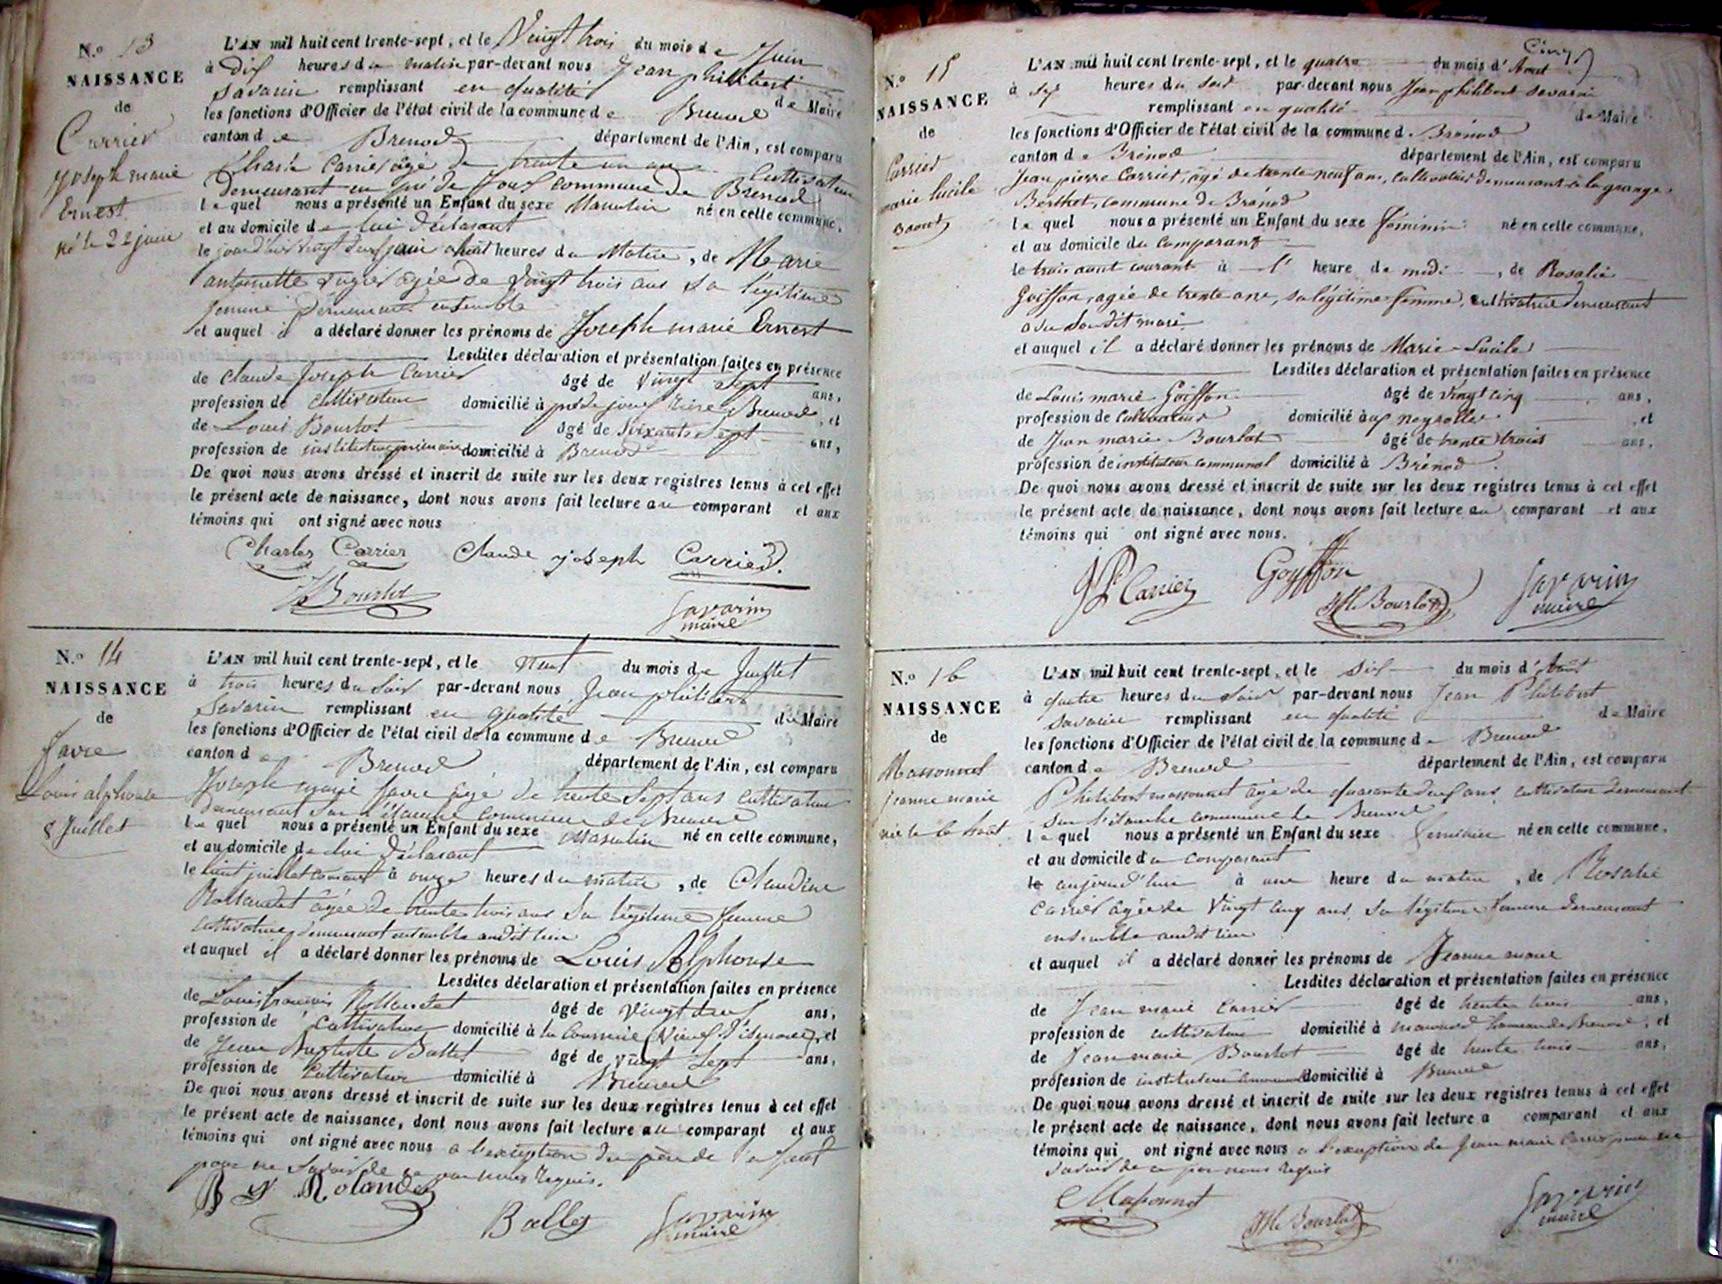 N.o 13
NAISSANCE
de
Carrier
Joseph marie
Ernest
né le 22 juin
L'AN mil huit cent trente-sept, et le Vingt trois du mois de Juin
à dix heures du matin par-devant nous Jean philibert
Savarin remplissant en qualité de Maire
les fonctions d'Officier de l'état civil de la commune de Brenod
canton de Brenod département de l'Ain, est comparu
Charle Carrier âgé de trente un ans Cultivateur
demeurant en pré de Joux commune de Brenod
lequel nous a présenté un Enfant du sexe Masculin né en cette commune,
et au domicile de lui déclarant
le jourd'hier vingt deux juin à huit heures du Matin, de Marie
antoinette âgée de Vingt trois ans Sa légitime
femme Demeurant ensemble
et auquel il a déclaré donner les prénoms de Joseph marie Ernest
Lesdites déclaration et présentation faites en présence
de Claude Joseph Carrier âgé de Vingt Sept ans,
profession de Cultivateur domicilié à pré de joux Brenod, et
de Louis Bourlot âgé de Soixante Sept ans,
profession de instituteur primaire domicilié à Brenod
De quoi nous avons dressé et inscrit de suite sur les deux registres tenus à cet effet
le présent acte de naissance, dont nous avons fait lecture au comparant et aux
témoins qui ont signé avec nous
Charles Carrier Claude joseph Carrier
Bourlot Savarin
maire
N.o 14
NAISSANCE
de
favre
Louis alphonse
8 Juillet
L'AN mil huit cent trente-sept, et le neuf du mois de Juillet
à trois heures du Soir par-devant nous Jean philibert
Savarin remplissant en qualité de Maire
les fonctions d'Officier de l'état civil de la commune de Brenod
canton de Brenod département de l'Ain, est comparu
Joseph marie favre âgé de trente Sept ans Cultivateur
demeurant Sur commune de Brenod
lequel nous a présenté un Enfant du sexe Masculin né en cette commune,
et au domicile de lui déclarant
le huit juillet courant à onze heures du matin, de Claudine
âgée de trente trois ans Sa légitime femme
cultivatrice demeurant ensemble audit lieu
et auquel il a déclaré donner les prénoms de Louis Alphonse
Lesdites déclaration et présentation faites en présence
de Louis françois âgé de Vingt deux ans,
profession de Cultivateur domicilié à et
de Jean Baptiste Ballet âgé de Vingt Sept ans,
profession de Cultivateur domicilié à Brenod
De quoi nous avons dressé et inscrit de suite sur les deux registres tenus à cet effet
le présent acte de naissance, dont nous avons fait lecture au comparant et aux
témoins qui ont signé avec nous à l'exception du père de l'enfant
pour ne Savoir de ce par nous requis.
Savarin
maire
Cinq
N.o 15
NAISSANCE
de
Carrier
marie lucile
3 aout
L'AN mil huit cent trente-sept, et le quatre du mois d'Aout
à heures du soir par-devant nous Jean philibert Savarin
remplissant en qualité de Maire
les fonctions d'Officier de l'état civil de la commune de Brénod
canton de Brénod département de l'Ain, est comparu
Jean pierre Carrier, agé de trente neuf ans, cultivateur demeurant à la grange
Berthet, commune de Brénod
lequel nous a présenté un Enfant du sexe féminin né en cette commune,
et au domicile du comparant
le trois aout courant à l' heure de midi, de Rosalie
Goiffon, agée de trente ans, sa légitime femme, cultivatrice demeurant
avec son dit mari
et auquel il a déclaré donner les prénoms de Marie-Lucile
Lesdites déclaration et présentation faites en présence
de Louis marie Goiffon âgé de vingt cinq ans,
profession de Cultivateur domicilié aux neyrolles, et
de Jean marie Bourlot âgé de trente trois ans,
profession de instituteur communal domicilié à Brénod
De quoi nous avons dressé et inscrit de suite sur les deux registres tenus à cet effet
le présent acte de naissance, dont nous avons fait lecture au comparant et aux
témoins qui ont signé avec nous.
JP Carrier Goyffon JM Bourlot Savarin
maire
N.o 16
NAISSANCE
de
Massonnet
jeanne marie
née le 6 Aout
L'AN mil huit cent trente-sept, et le six du mois d'Août
à quatre heures du Soir par-devant nous Jean Philibert
Savarin remplissant en qualité de Maire
les fonctions d'Officier de l'état civil de la commune de Brenod
canton de Brenod département de l'Ain, est comparu
Philibert massonnet âgé de quarante ans, cultivateur demeurant
Sur commune de Brenod
lequel nous a présenté un Enfant du sexe feminin né en cette commune,
et au domicile du comparant
le aujourd'hui à une heure du matin, de Rosalie
Carrier agée de Vingt cinq ans, Sa légitime femme demeurant
ensemble audit lieu
et auquel il a déclaré donner les prénoms de Jeanne marie
Lesdites déclaration et présentation faites en présence
de Jean marie Carrier âgé de trente trois ans,
profession de cultivateur domicilié à hameau de Brenod, et
de Jean marie Bourlot âgé de trente trois ans,
profession de instituteur communal domicilié à Brenod
De quoi nous avons dressé et inscrit de suite sur les deux registres tenus à cet effet
le présent acte de naissance, dont nous avons fait lecture a comparant et aux
témoins qui ont signé avec nous a l'exception de Jean marie Carrier pour ne
Savoir de ce par nous requis
Massonnet JM Bourlot Savarin
maire